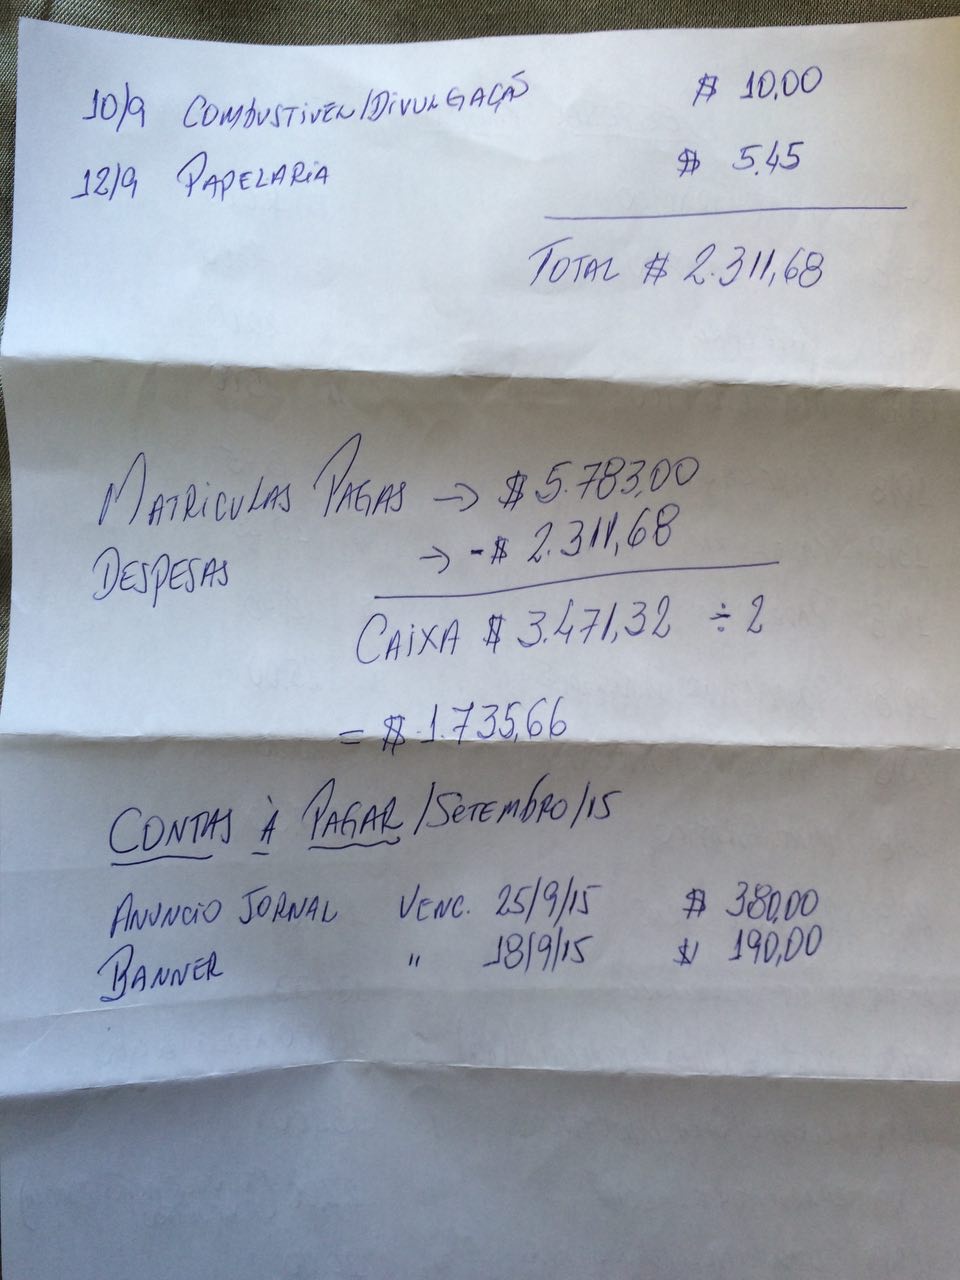 10/9 COMBUSTIVEL/DIVULGAÇÃO $ 10,00
12/9 PAPELARIA $ 5.45
TOTAL $ 2.311,68
MATRICULAS PAGAS → $ 5.783,00
DESPESAS → - $ 2.311,68
CAIXA $ 3.471,32 ÷ 2
= $ 1.735,66
CONTAS À PAGAR/SETEMBRO/15
ANUNCIO JORNAL VENC. 25/9/15 $ 380,00
BANNER " 18/9/15 $ 190,00